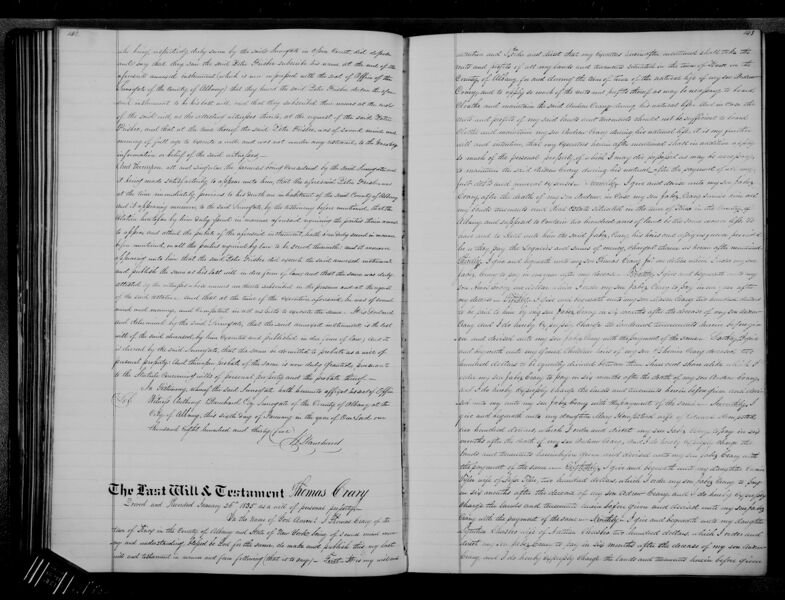 who being respectively duly sworn by the said Surrogate in Open Court did depose
and say that they saw the said Peter Frisbee subscribe his name at the end of the
aforesaid annexed instrument (which is now impressed with the seal of Office of the
Surrogate of the County of Albany) that they heard the said Peter Frisbee declare the afore
said instrument to be his last will, and that they subscribed their names at the end
of the said will as the attesting witnesses thereto, at the request of the said Peter
Frisbee, and that at the time thereof the said Peter Frisbee was of sound mind and
memory of full age to execute a will and was not under any restraint to the knowledge
information or belief of the said witnesses
And Whereupon all and singular the premises being considered by the said Surrogate and
it being made satisfactorily to appear unto him, that the aforesaid Peter Frisbee was
at the time immediately previous to his death an inhabitant of the said County of Albany
and it appearing moreover, to the said Surrogate, by the testimony before mentioned, that the
citation heretofore by him duly issued in manner aforesaid requiring the parties therein named
to appear and attend the probate of the aforesaid instrument, hath been duly served in manner
before mentioned, on all the parties required by law to be served therewith: and it moreover
appearing unto him that the said Peter Frisbee did execute the said annexed instrument
and publish the same as his last will in due form of law, and that the same was duly
attested by the witnesses who names are thereto subscribed in the presence and at the request
of the said testator And that at the time of the execution aforesaid, he was of sound
mind and memory, and competent in all respects to execute the same. It is Declared
and determined by the said Surrogate, that the said annexed instrument is the last
will of the said deceased, by him executed and published in due form of law; And it
is decreed by the said Surrogate, that the same be admitted to probate as a will of
personal property: And thereupon record of the same is now duly granted, pursuant
to the Statute concerning wills of personal property and the probate thereof
In Testimony whereof the said Surrogate hath hereunto affixed his seal of Office
Witness Anthony Blanchard Esq Surrogate of the County of Albany at the
City of Albany, this sixth day of January in the year of Our Lord one
thousand eight hundred and thirty five
A. Blanchard
The Last Will & Testament Thomas Crary
Proved and Recorded January 26th 1835 as a will of personal property
In the Name of God Amen! I Thomas Crary of the
town of Knox in the County of Albany and State of New York being of sound mind mem-
ory and understanding blessed be God for the same, do make and publish this my last
will and testament in manner and form following (that is to say) First It is my will and
143
intention and I order and direct that my Executors herein after mentioned shall take the
rents and profits of all my lands and tenements situated in the town of Knox in the
County of Albany for and during the term of time of the natural life of my son Andrew
Crary, and to apply so much of the rents and profits thereof as may be necessary to board
cloathe and maintain the said Andrew Crary during his natural life. And in case the
rents and profits of my said lands and tenements should not be sufficient to board
cloathe and maintain my son Andrew Crary during his natural life, it is my further
will and intention, that my Executors herein after mentioned shall in addition apply
so much of the personal property of which I may die possessed as may be necessary
to maintain the said Andrew Crary during his natural life after the payment of all my
just debts and funeral expenses. Secondly I give and devise unto my son Jabez
Crary after the death of my son Andrew, in case my son Jabez Crary survives him all
my lands tenements and Real Estate situated in the town of Knox in the County of
Albany and supposed to contain two hundred acres of land be the same more or less. To
have and to hold unto him the said Jabez Crary, his heirs and assigns forever, provided
he or they pay the legacies and sums of money, charged thereon as herein after mentioned
Thirdly I give and bequeath unto my son Thomas Crary five dollars which I order my son
Jabez Crary to pay in one year after my decease. Fourthly I give and bequeath unto my
son dollars which I order my son Jabez Crary to pay in one year after
my decease Fifthly I give and bequeath unto my son Mason Crary two hundred dollars
to be paid to him by my son Jabez Crary in six months after the decease of my son Andrew
Crary and I do hereby expressly charge the lands and tenements herein before given
and devised unto my son Jabez Crary with the payment of the same. Sixthly I give
and bequeath unto my grand Children heirs of my son Thomas Crary deceased, two
hundred dollars to be equally divided between them share and share alike which I
order my son Jabez Crary to pay in six months after the decease of my son Andrew Crary,
and I do hereby expressly charge the lands and tenements herein before given and devi-
sed unto my son Jabez Crary with the payment of the same. Seventhly I
give and bequeath unto my daughter Mary wife of Edward
two hundred dollars which I order and direct my son Jabez Crary to pay in six
months after the death of my son Andrew Crary, and I do hereby expressly charge the
lands and tenements herein before given and devised unto my son Jabez Crary with
the payment of the same. Eighthly I give and bequeath unto my daughter
wife of two hundred dollars, which I order my son Jabez Crary to pay
in six months after the decease of my son Andrew Crary, and I do hereby expressly
charge the lands and tenements herein before given and devised unto my son Jabez
Crary with the payment of the same. Ninthly I give and bequeath unto my daughter
Cynthia wife of Nathan two hundred dollars which I order and
direct my son Jabez Crary to pay in six months after the decease of my son Andrew
Crary, and I do hereby expressly charge the lands and tenements herein before given